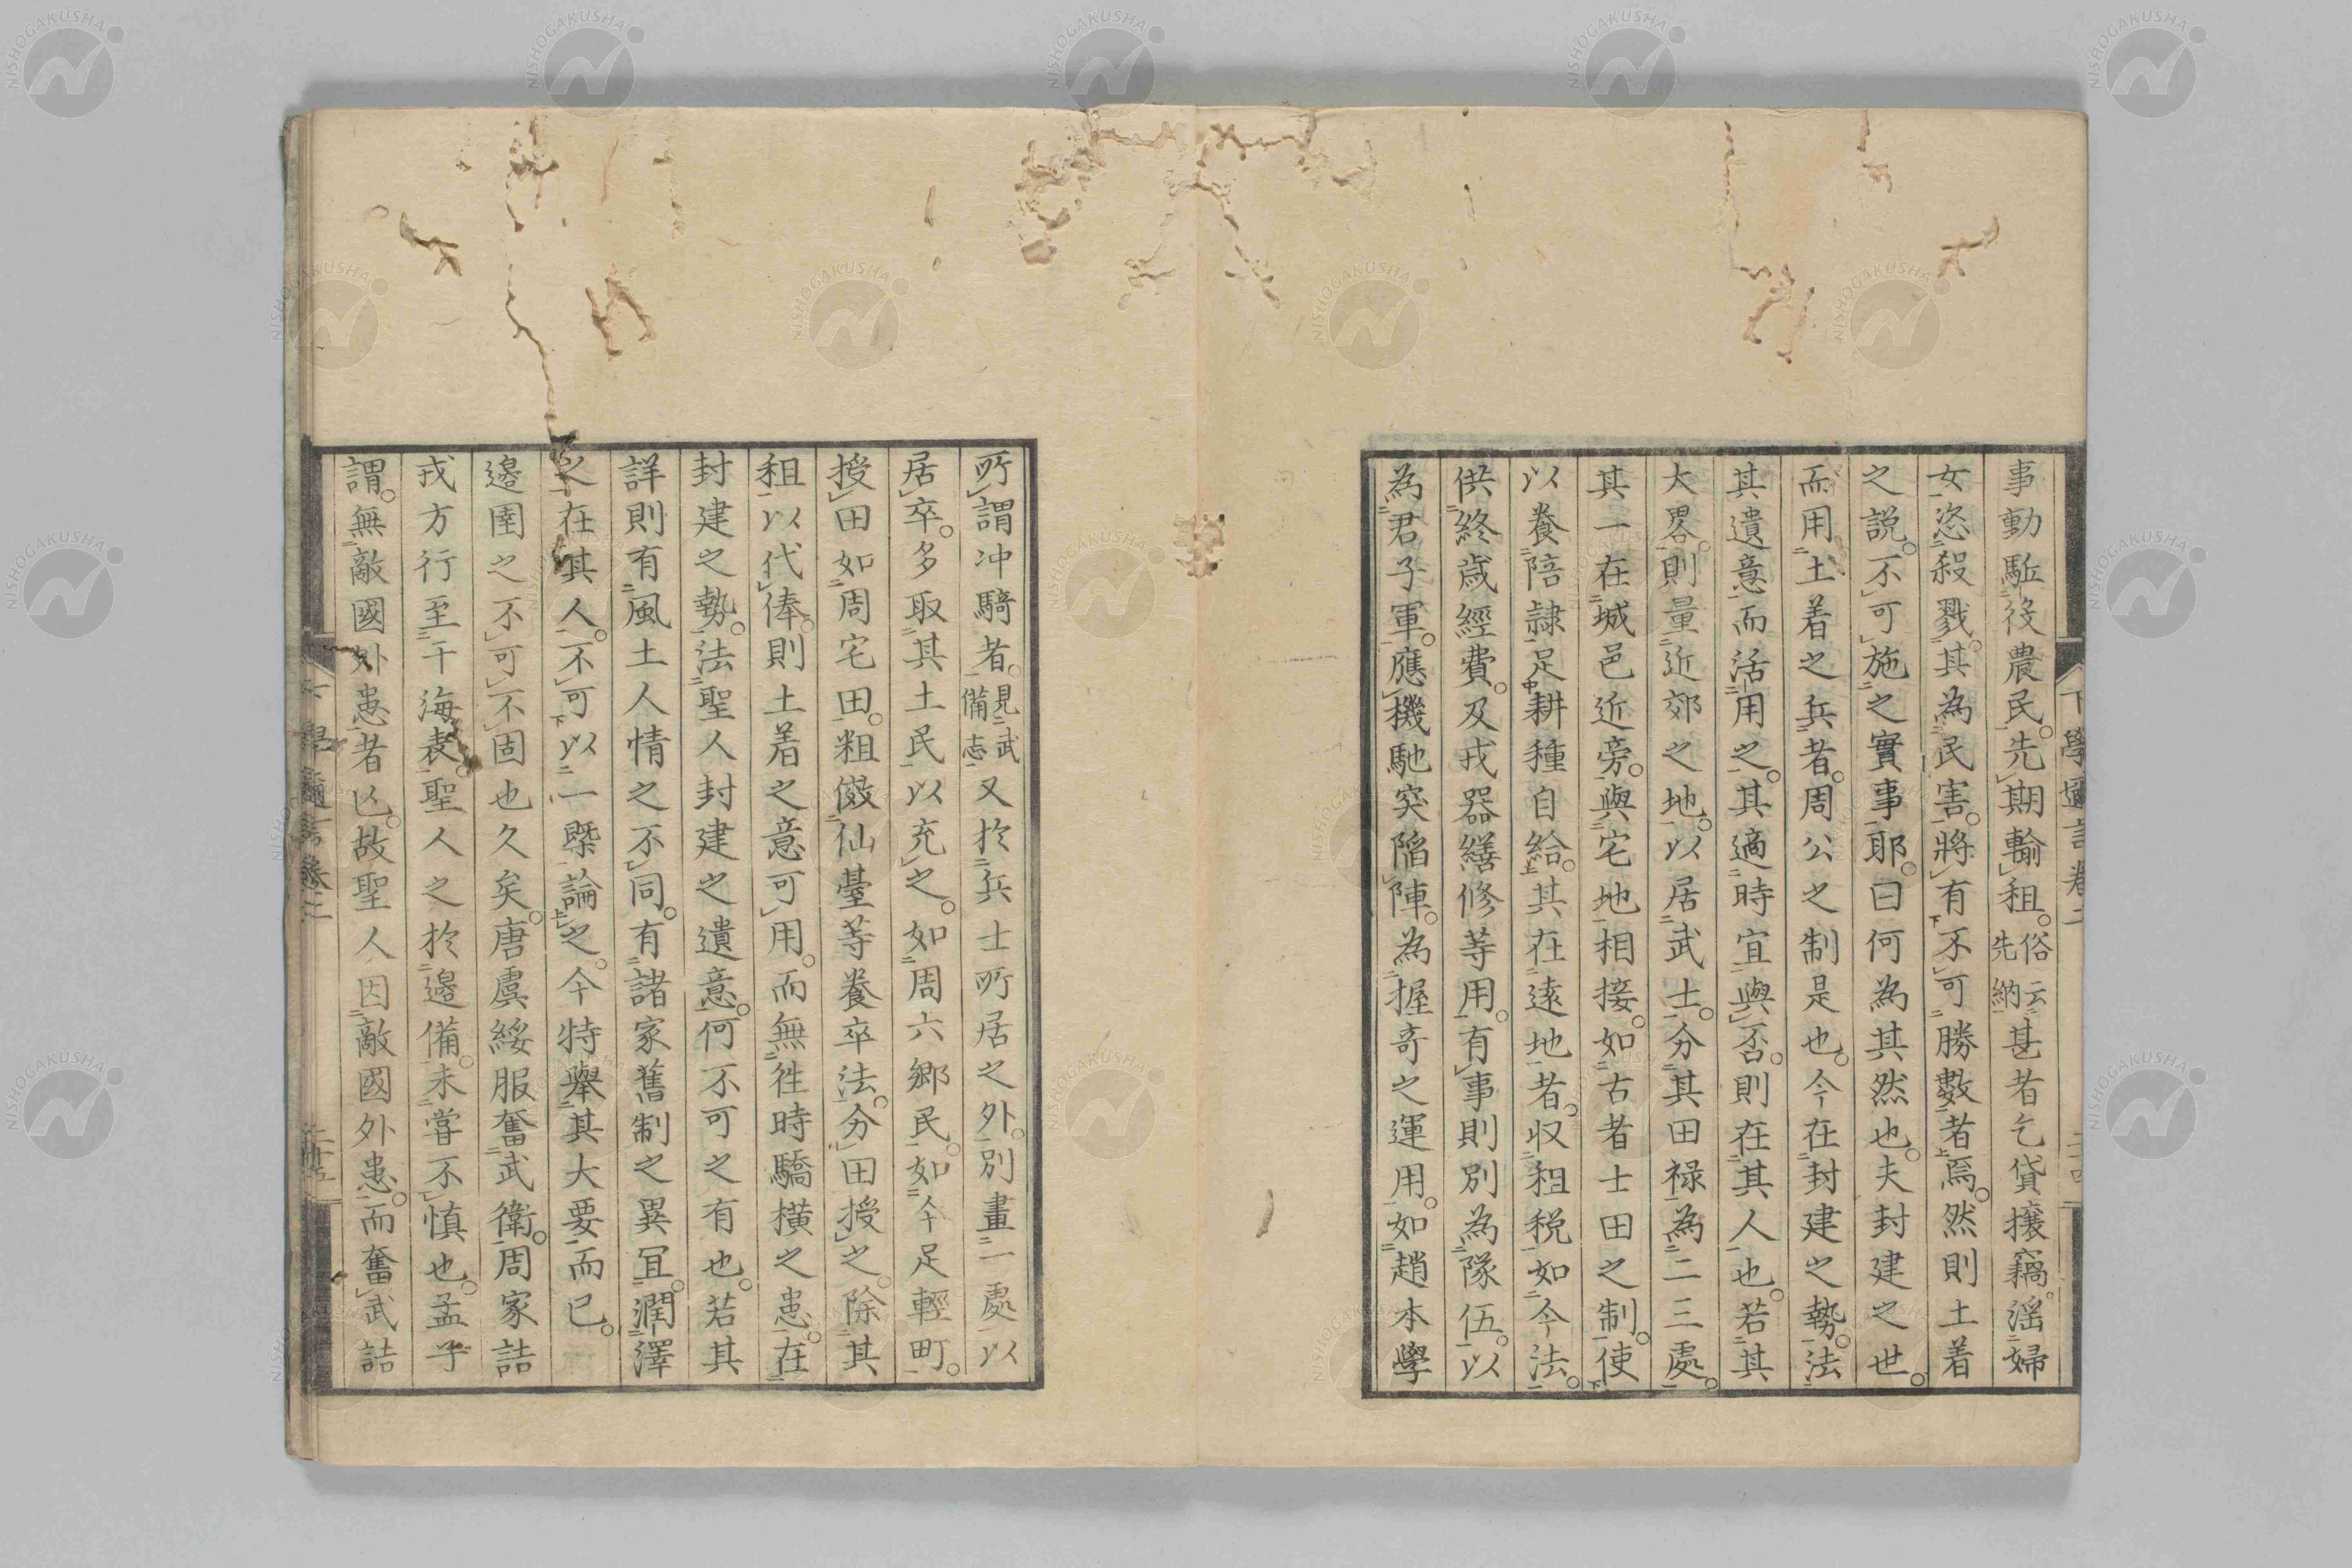 事動駈役農民。先期輸租。俗云先納甚者乞貸攘竊。淫婦
女恣殺戮。其為民害。將有不可勝數者焉。然則土着
之説。不可施之實事耶。曰何為其然也。夫封建之世。
而用土着之兵者。周公之制是也。今在封建之勢。法
其遺意而活用之。其適時宜與否。則在其人也。若其
大畧。則量近郊之地。以居武士。分其田禄。為二三處。
其一在城邑近旁。與宅地相接。如古者士田之制。使
以養陪隷足耕種自給。其在遠地者。収租税如今法。
供終歳經費。及戎器繕修等用。有事則別為隊伍。以
為君子軍。應機馳突陷陣。為握奇之運用。如趙本學
下學邇言卷二
二十四
所謂冲騎者。見武備志又於兵士所居之外。別畫一處。以
居卒。多取其土民以充之。如周六郷民。如今足輕町。
授田如周宅田。粗倣仙臺等養卒法。分田授之。除其
租以代俸。則土着之意可用。而無徃時驕橫之患。在
封建之勢。法聖人封建之遺意。何不可之有也。若其
詳則有風土人情之不同。有諸家舊制之異冝。潤澤
之在其人。不可以一槩論之。今特舉其大要而已。
邊圉之不可不固也久矣。唐虞綏服奮武衛。周家詰
戎方行至于海表。聖人之於邊備。未嘗不慎也。孟子
謂。無敵國外患者亾。故聖人因敵國外患。而奮武詰
下學邇言卷二
NISHOGAKUSHA